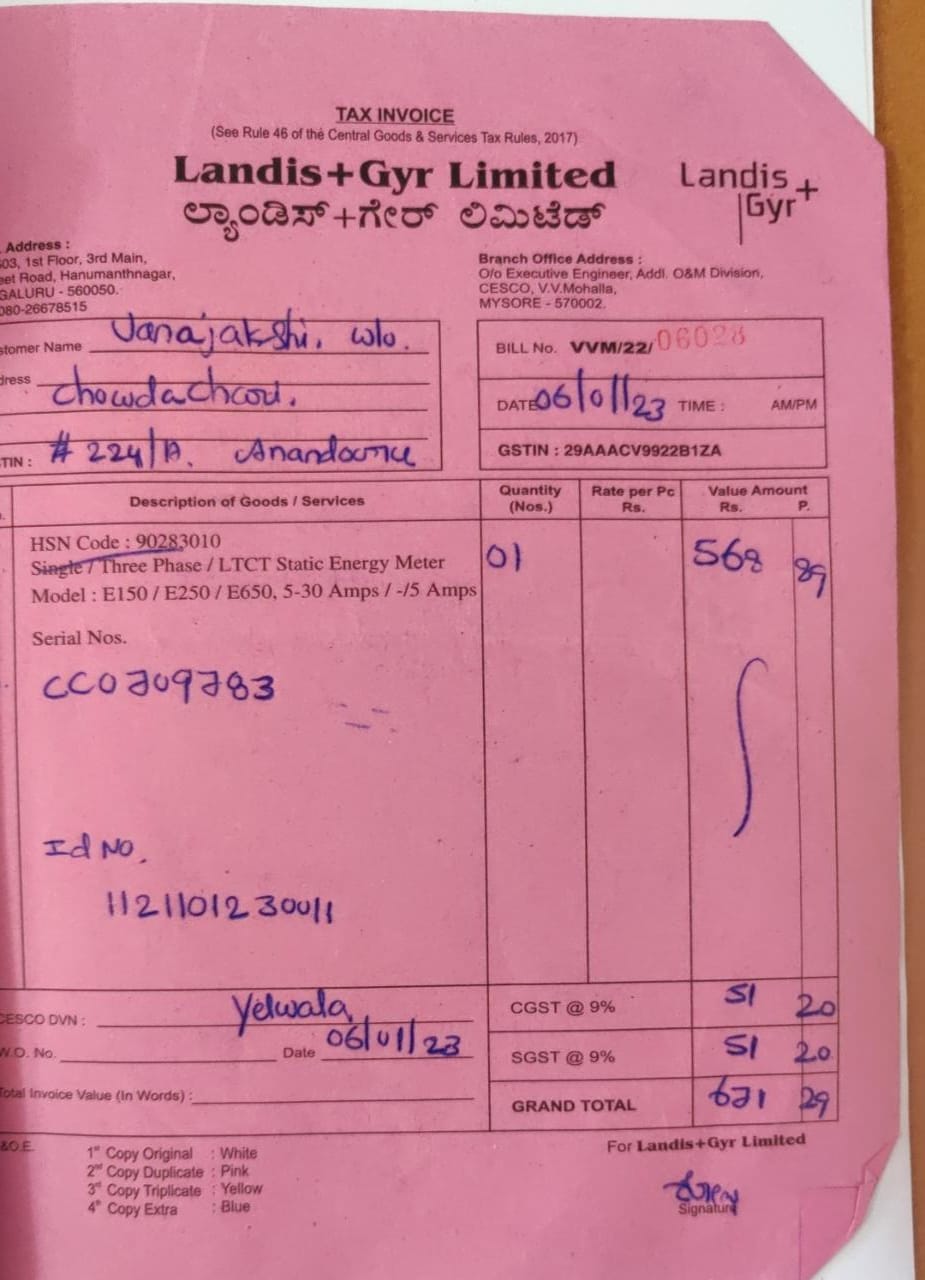 TAX INVOICE
(See Rule 46 of the Central Goods & Services Tax Rules, 2017)
Landis+Gyr Limited
Landis+
Gyr
ಲ್ಯಾಂಡಿಸ್+ಗೇರ್ ಲಿಮಿಟೆಡ್
Address :
603, 1st Floor, 3rd Main,
eet Road, Hanumanthnagar,
GALURU - 560050.
080-26678515
Branch Office Address :
O/o Executive Engineer, Addl. O&M Division,
CESCO, V.V.Mohalla,
MYSORE - 570002.
stomer Name Vanajakshi, w/o.
dress Chowdachari.
TIN : # 224/A.
BILL No. VVM/22/ 06028
DATE 06/01/23 TIME : AM/PM
GSTIN : 29AAACV9922B1ZA
Description of Goods / Services Quantity (Nos.) Rate per Pc Rs. Value Amount Rs. P.
HSN Code : 90283010
Single / Three Phase / LTCT Static Energy Meter 01 568 89
Model : E150 / E250 / E650, 5-30 Amps / -/5 Amps
Serial Nos.
CC0709783
Id No.
1121101230011
CESCO DVN : Yelwala
W.O. No. Date 06/01/23
Total Invoice Value (In Words) :
CGST @ 9% 51 20
SGST @ 9% 51 20
GRAND TOTAL 671 29
&O.E.
1st Copy Original : White
2nd Copy Duplicate : Pink
3rd Copy Triplicate : Yellow
4th Copy Extra : Blue
For Landis+Gyr Limited
Signature